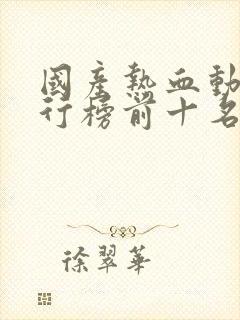 國產熱血動
行榜前十名
徐翠華